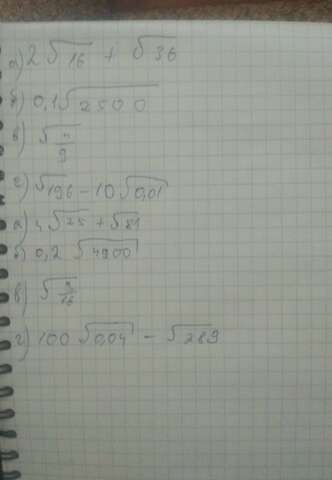 а) 2√16 + √36
б) 0,1√2500
в) √4/9
г) √196 - 10√0,01
а) 4√25 + √81
б) 0,2 √4900
в) √9/16
г) 100√0,04 - √289